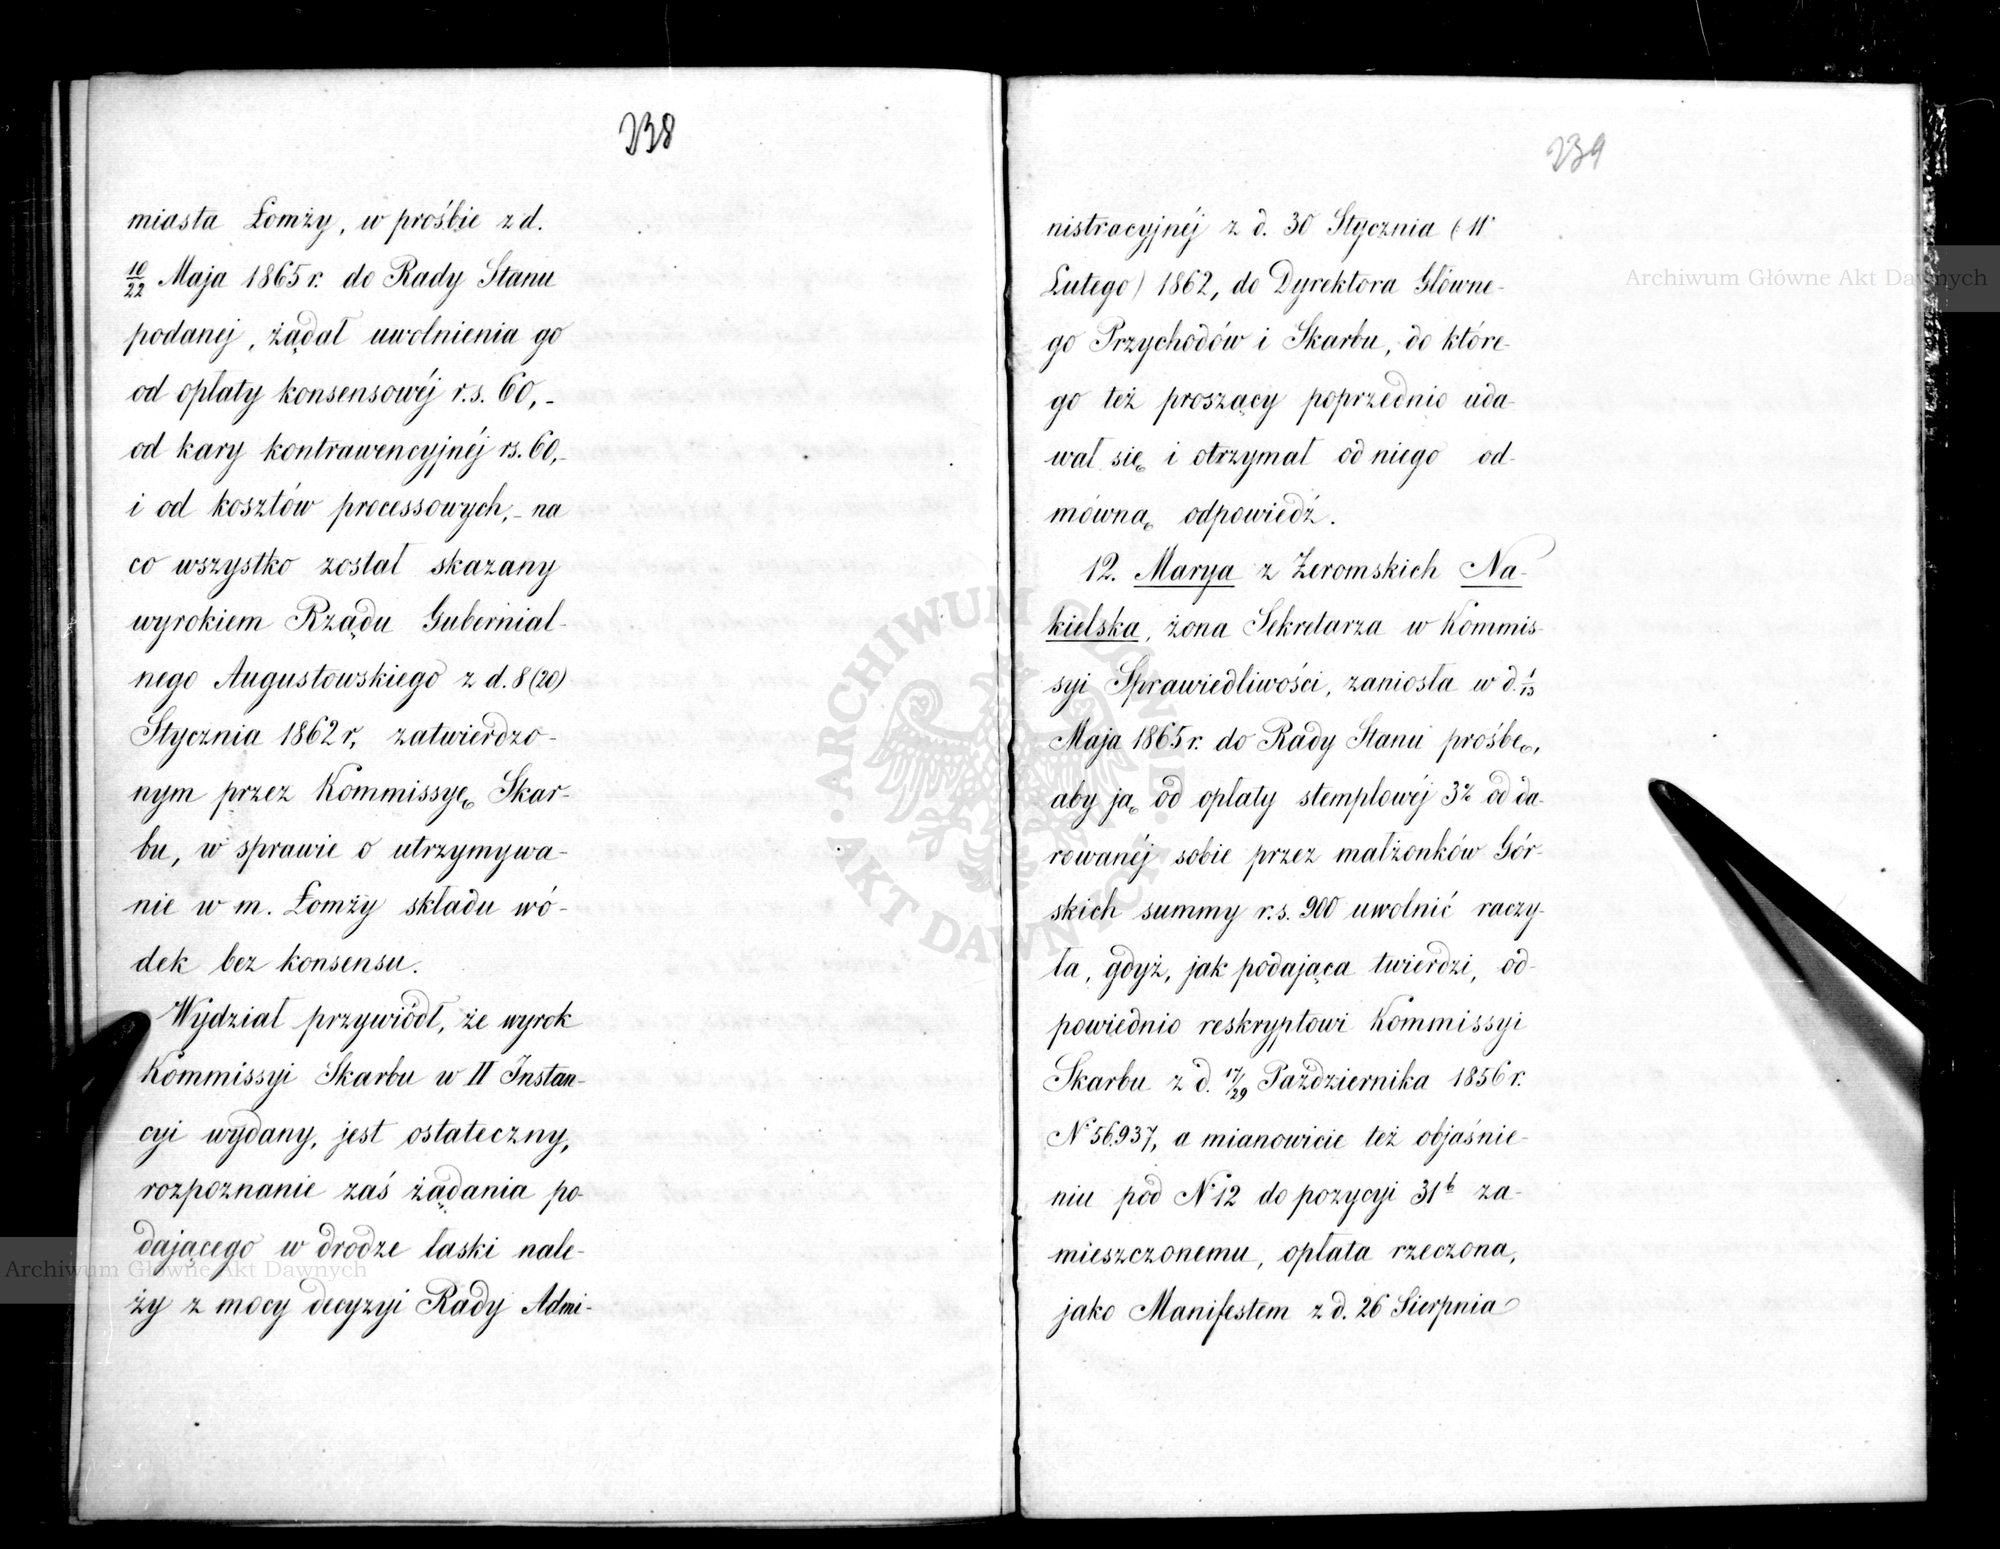 238
miasta Łomży, w prośbie z d.
10/22 Maja 1865 r. do Rady Stanu
podanej, żądał uwolnienia go
od opłaty konsensowéj r.s. 60,-
od kary kontrawencyjnéj rs. 60,-
i od kosztów processowych,- na
co wszystko został skazany
wyrokiem Rządu Gubernial-
nego Augustowskiego z d. 8 (20)
Stycznia 1862 r, zatwierdzo-
nym przez Kommissyę Skar-
bu, w sprawie o utrzymywa-
nie w m. Łomży składu wó-
dek bez konsensu.
Wydział przywiódł, że wyrok
Kommissyi Skarbu w II Instan-
cyi wydany, jest ostateczny,
rozpoznanie zaś żądania po-
dającego w drodze łaski nale-
ży z mocy decyzyi Rady Admi-
239
nistracyjnéj z d. 30 Stycznia (11
Lutego) 1862, do Dyrektora Główne-
go Przychodów i Skarbu, do które-
go też proszący poprzednio uda-
wał się i otrzymał od niego od-
mówną odpowiedź.
12. Marya z Żeromskich Na-
kielska, żona Sekretarza w Kommis-
syi Sprawiedliwości, zaniosła w d. 1/13
Maja 1865 r. do Rady Stanu prośbę,
aby ją od opłaty stemplowéj 3% od da-
rowanéj sobie przez małżonków Gór-
skich summy r.s. 900 uwolnić raczy-
ła, gdyż, jak podająca twierdzi, od-
powiednio reskryptowi Kommissyi
Skarbu z d. 17/29 Października 1856 r.
N° 56,937, a mianowicie też objaśnie-
niu pod N° 12 do pozycyi 31 b za-
mieszczonemu, opłata rzeczona,
jako Manifestem z d. 26 Sierpnia
Archiwum Główne Akt Dawnych
Archiwum Główne Akt Dawnych
ARCHIWUM GŁÓWNE · AKT DAWNYCH ·